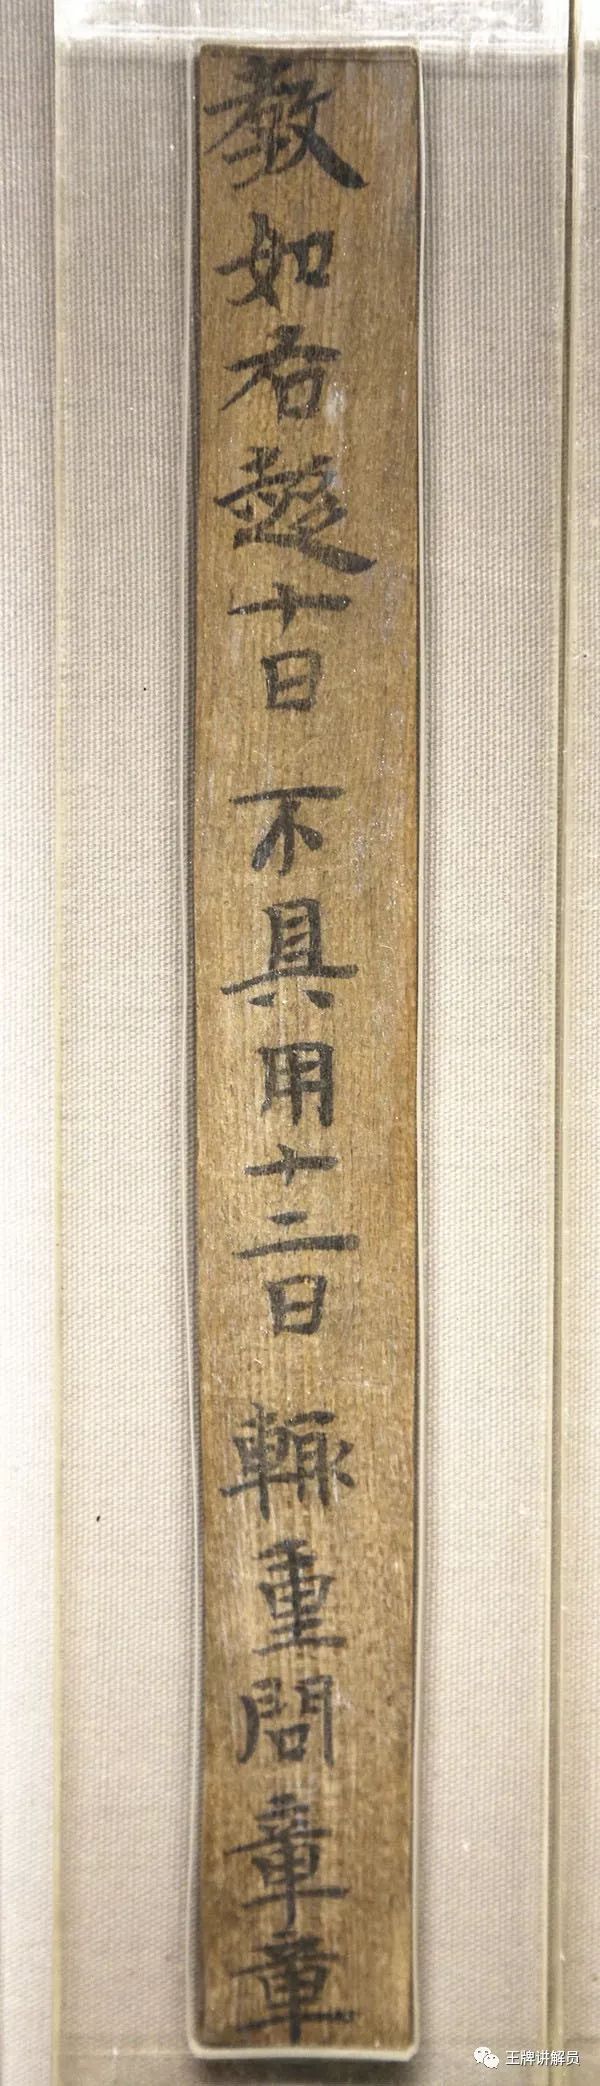 教如右十日不具用十二日輙重問章章
王牌讲解员